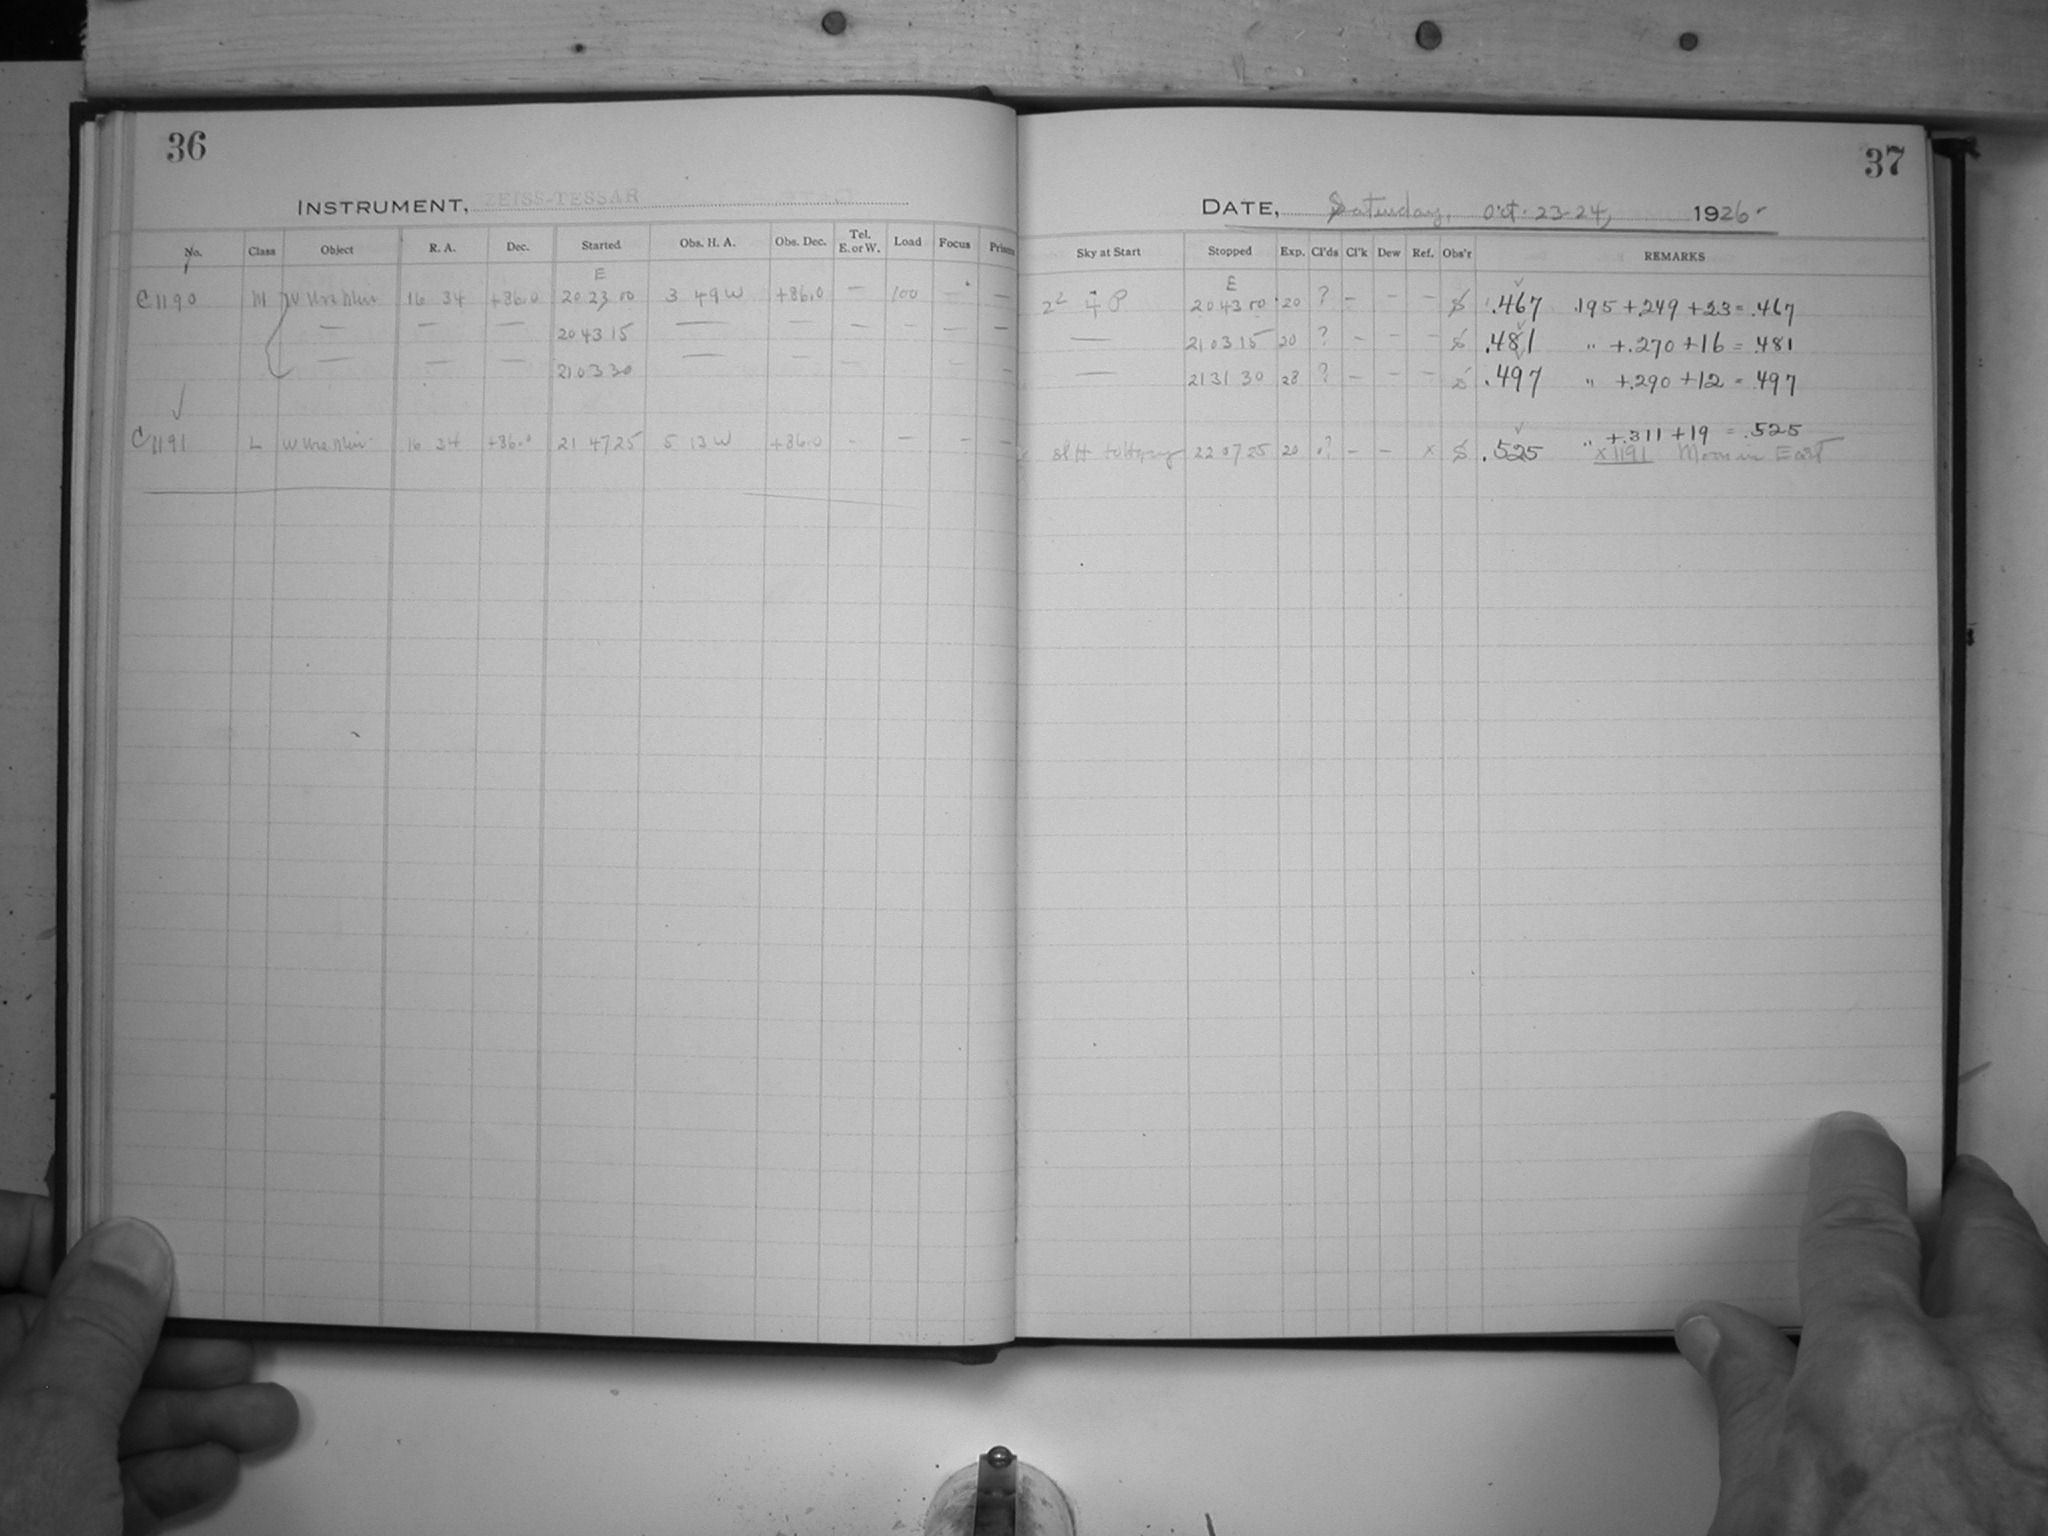 36
INSTRUMENT, ZEISS-TESSAR
No. Class Object R. A. Dec. Started Obs. H. A. Obs. Dec. Tel. E. or W. Load Focus Prisms
E
C1190 M W Urs Min 16 34 +86.0 20 23 00 3 49 W +86.0 — 100 — —
— — — 20 43 15 — — — - - —
— — — 21 03 30 — — —
C1191 L W Urs Min 16 34 +86.0 21 47 25 5 13 W +86.0 - — - —
37
DATE, Saturday, Oct. 23-24, 1926
Sky at Start Stopped Exp. Cl'ds Cl'k Dew Ref. Obs'r REMARKS
E
20 43 00 20 ? - - - .467 .195 + .249 + 23 = .467
— 21 03 15 20 ? - - - .481 " + .270 + 16 = .481
— 21 31 30 28 ? - - - .497 " + .290 + 12 = .497
" + .311 + 19 = .525
22 07 25 20 ? - - x .525 x 1191 Moon in East